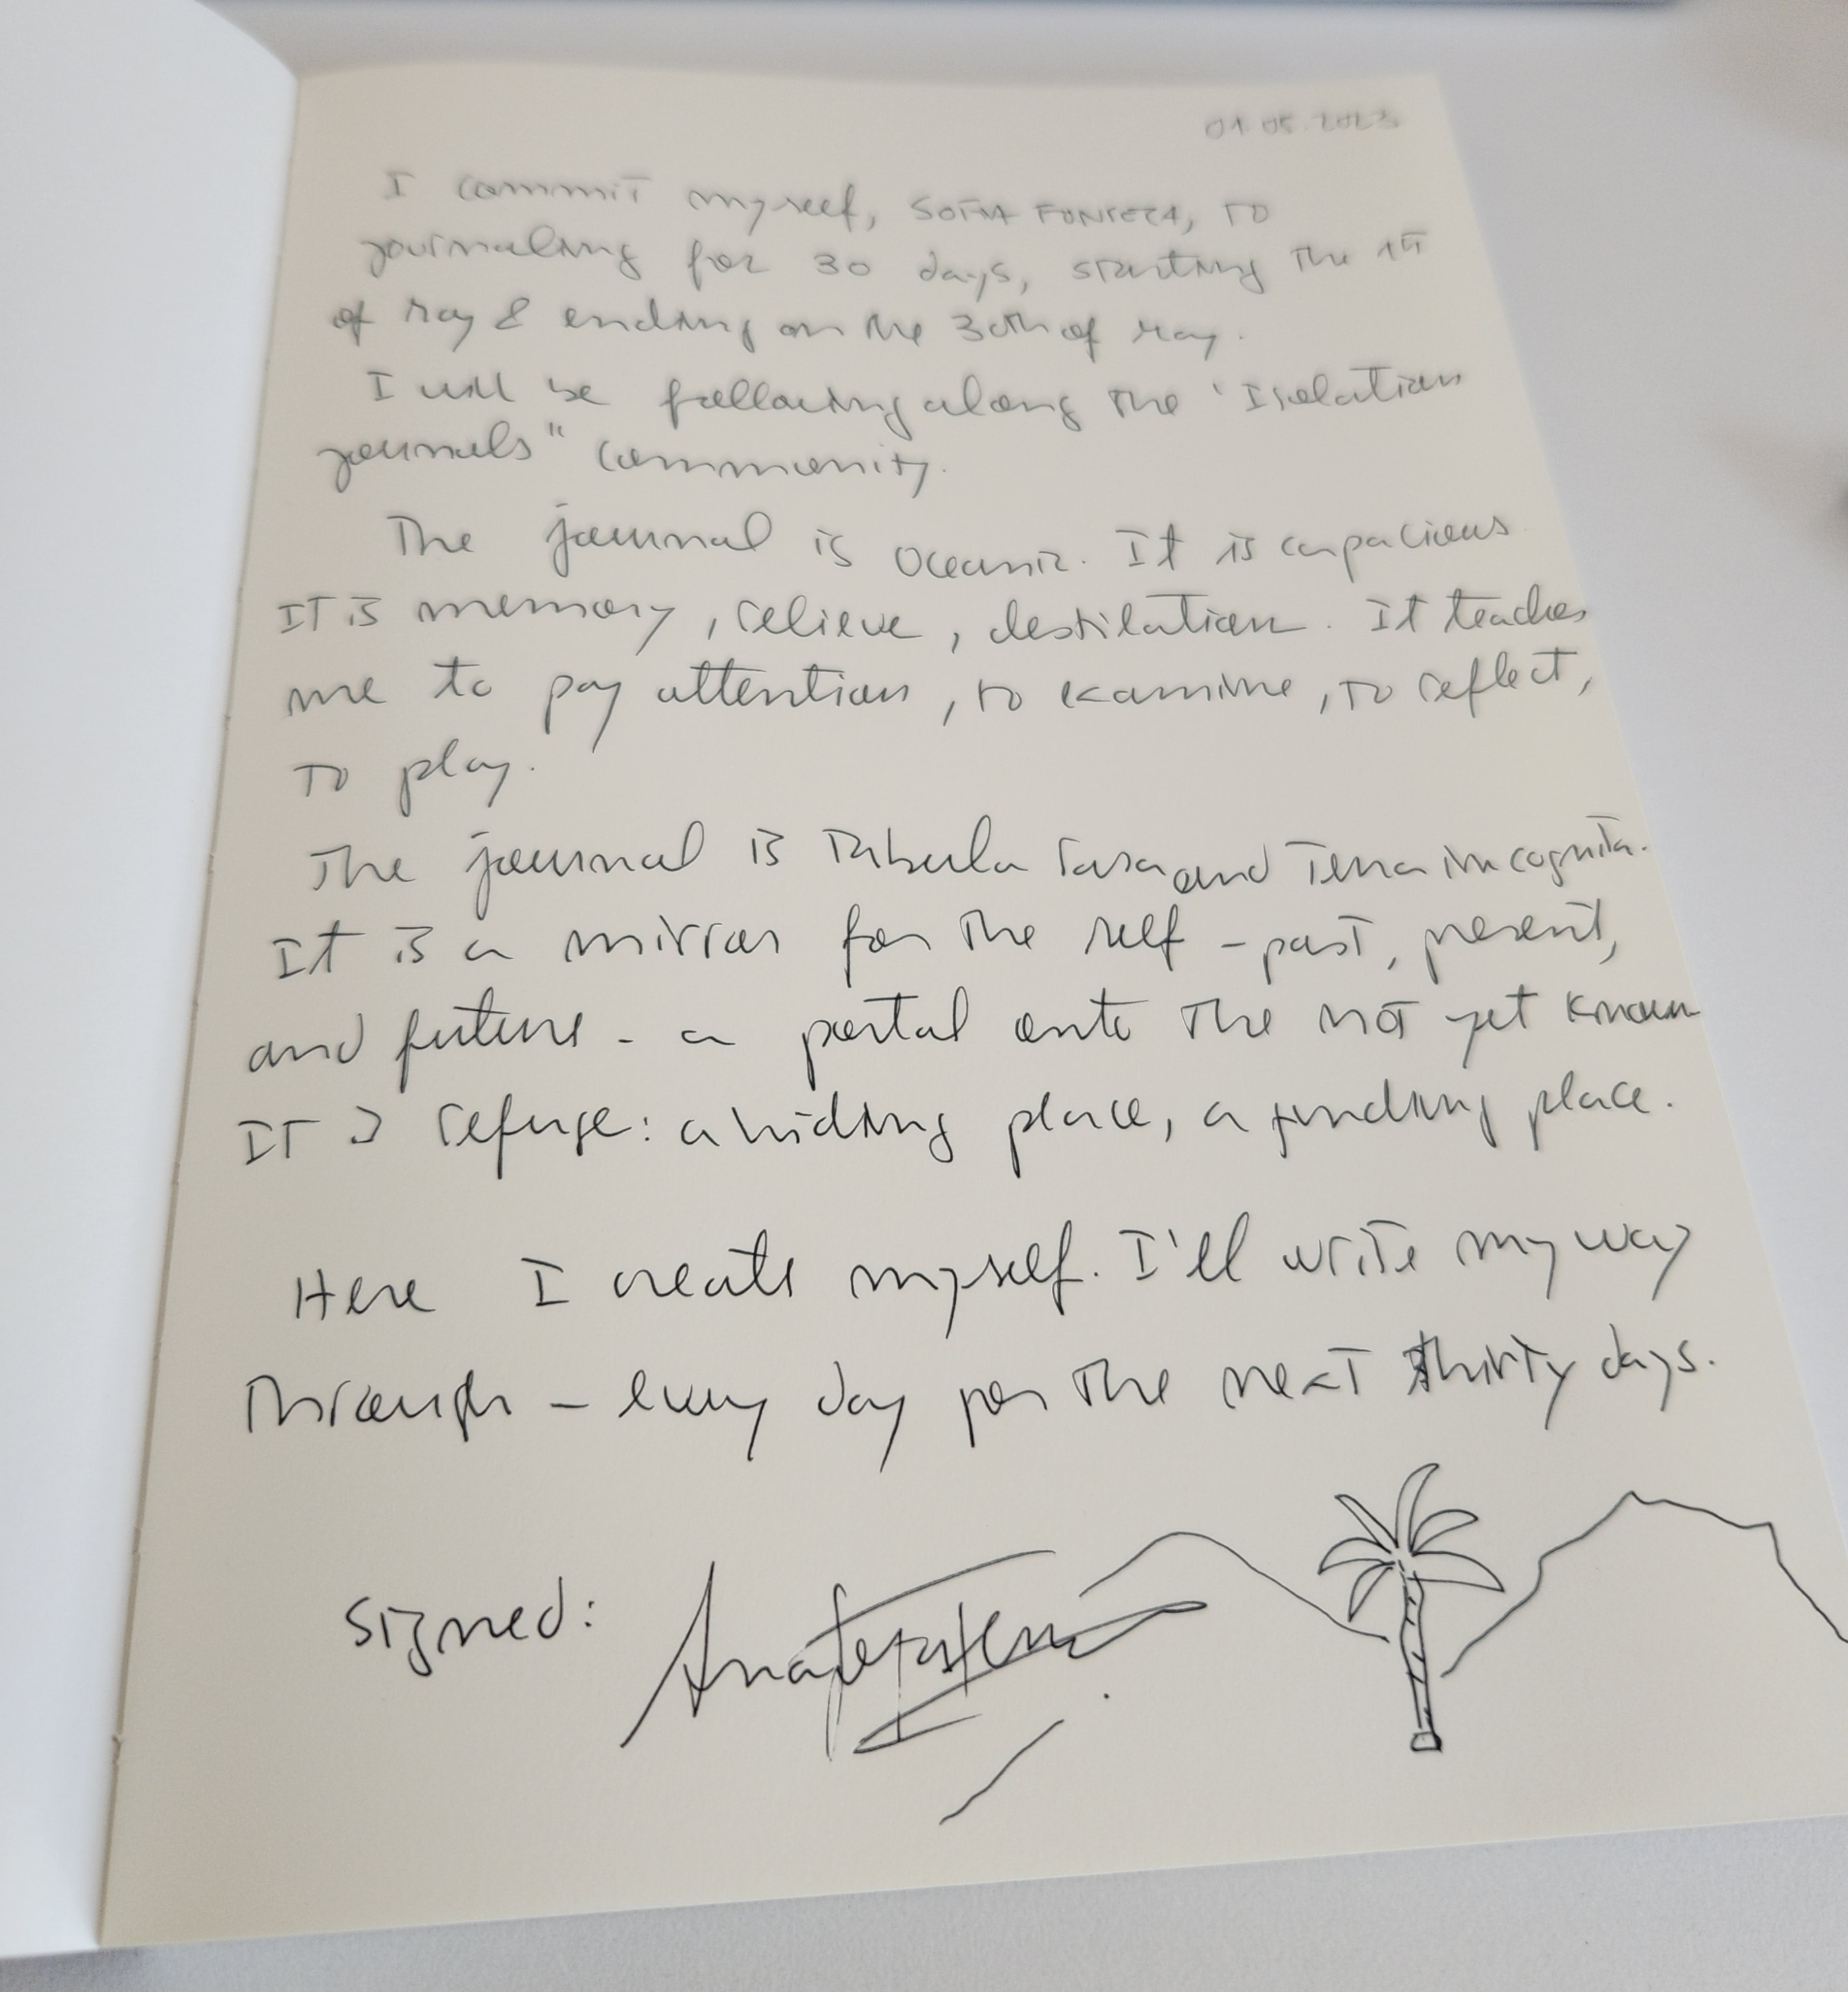 01.05.2023
I commit myself, SOFIA FONSECA, TO
journaling for 30 days, starting The 1st
of May & ending on the 30th of May.
I will be following along the "Isolation
journals" community.
The journal is oceanic. It is capacious
IT is memory, relieve, destilation. It teaches
me to pay attention, to examine, to reflect,
To play.
The journal is Tabula rasa and Terra incognita.
It is a mirror for the self - past, present,
and future - a portal onto the not yet known
IT is refuge: a hiding place, a finding place.
Here I create myself. I'll write my way
Through - every day for the next thirty days.
signed: